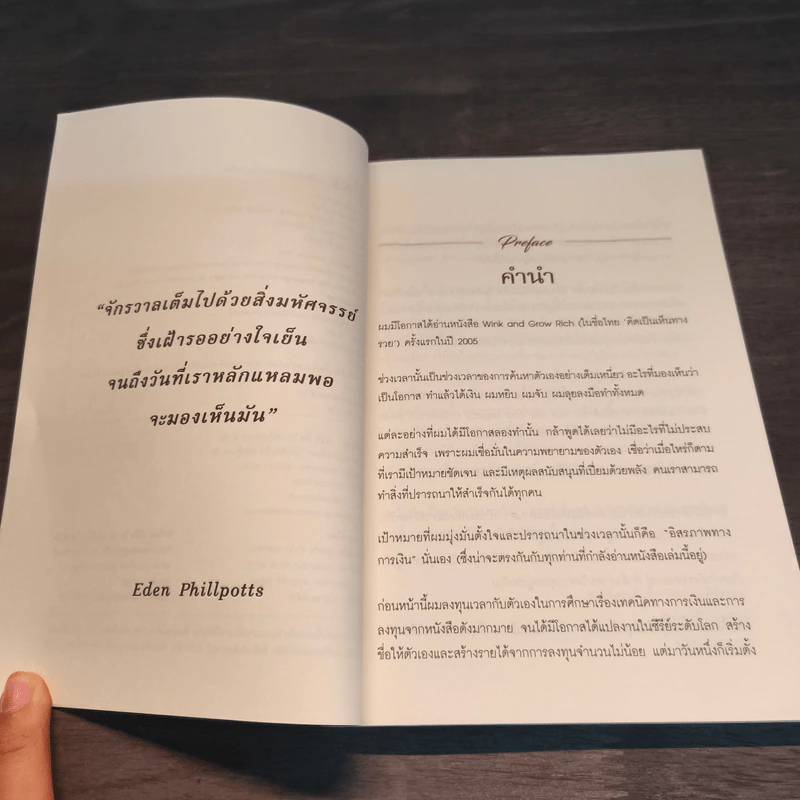 “จักรวาลเต็มไปด้วยสิ่งมหัศจรรย์
ซึ่งเฝ้ารออย่างใจเย็น
จนถึงวันที่เราหลักแหลมพอ
จะมองเห็นมัน”
Eden Phillpotts
Preface
คำนำ
ผมมีโอกาสได้อ่านหนังสือ Wink and Grow Rich (ในชื่อไทย ‘คิดเป็นเห็นทาง
รวย’) ครั้งแรกในปี 2005
ช่วงเวลานั้นเป็นช่วงเวลาของการค้นหาตัวเองอย่างเต็มเหนี่ยว อะไรที่มองเห็นว่า
เป็นโอกาส ทำแล้วได้เงิน ผมหยิบ ผมจับ ผมลุยลงมือทำทั้งหมด
แต่ละอย่างที่ผมได้มีโอกาสลองทำนั้น กล้าพูดได้เลยว่าไม่มีอะไรที่ไม่ประสบ
ความสำเร็จ เพราะผมเชื่อมั่นในความพยายามของตัวเอง เชื่อว่าเมื่อไหร่ก็ตาม
ที่เรามีเป้าหมายชัดเจน และมีเหตุผลสนับสนุนที่เปี่ยมด้วยพลัง คนเราสามารถ
ทำสิ่งที่ปรารถนาให้สำเร็จกันได้ทุกคน
เป้าหมายที่ผมมุ่งมั่นตั้งใจและปรารถนาในช่วงเวลานั้นก็คือ “อิสรภาพทาง
การเงิน” นั่นเอง (ซึ่งน่าจะตรงกันกับทุกท่านที่กำลังอ่านหนังสือเล่มนี้อยู่)
ก่อนหน้านี้ผมลงทุนเวลากับตัวเองในการศึกษาเรื่องเทคนิคทางการเงินและการ
ลงทุนจากหนังสือดังมากมาย จนได้มีโอกาสได้แปลงานในซีรีย์ระดับโลก สร้าง
ชื่อให้ตัวเองและสร้างรายได้จากการลงทุนจำนวนไม่น้อย แต่มาวันหนึ่งก็เริ่มตั้ง